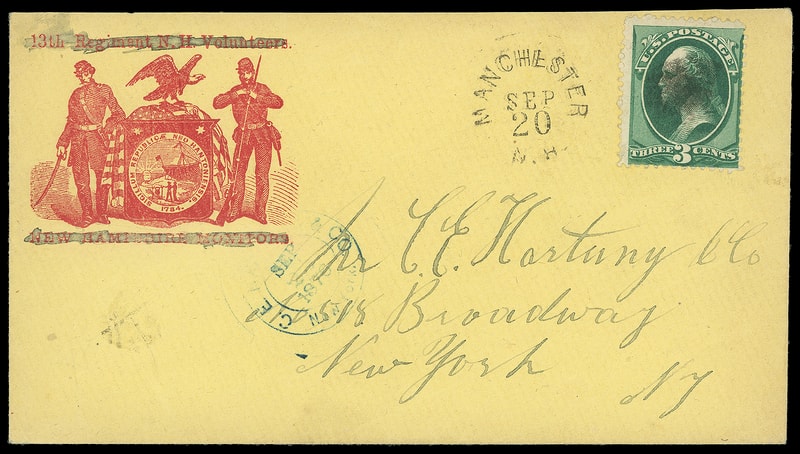 13th Regiment N. H. Volunteers.
SIGILLUM REIPUBLICÆ NEO HANTONIENSIS
1784.
NEW HAMPSHIRE MONITORS.
MANCHESTER
SEP
20
N.H.
U.S. POSTAGE
THREE 3 CENTS
C. E. Hartung & Co
518 Broadway
New York NY
C.E.
& CO
SEP